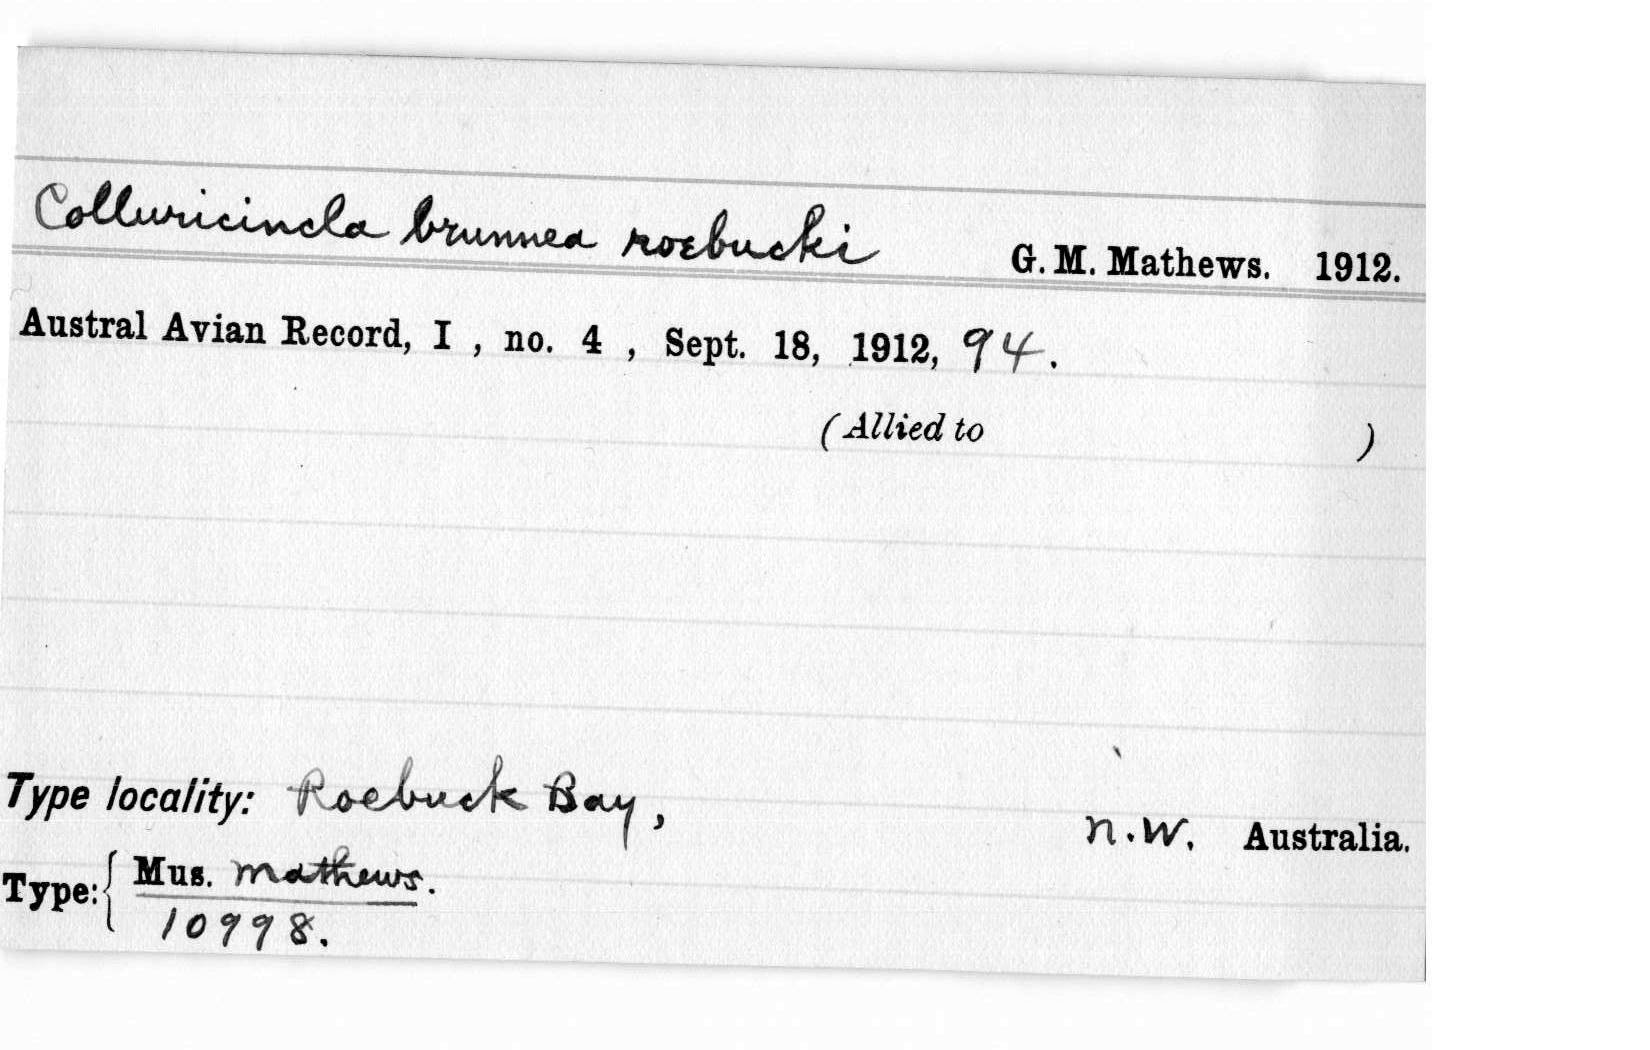 Colluricincla brunnea roebucki G. M. Mathews. 1912.
Austral Avian Record, I , no. 4 , Sept. 18, 1912, 94.
(Allied to )
Type locality: Roebuck Bay, N.W. Australia.
Type: { Mus. Mathews.
10998.